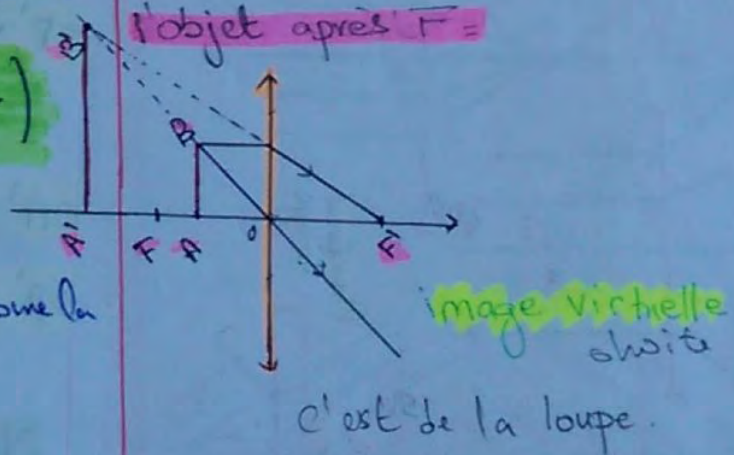 l'objet après F =
B'
B
A' F A O F'
image virtuelle
droite
c'est de la loupe.